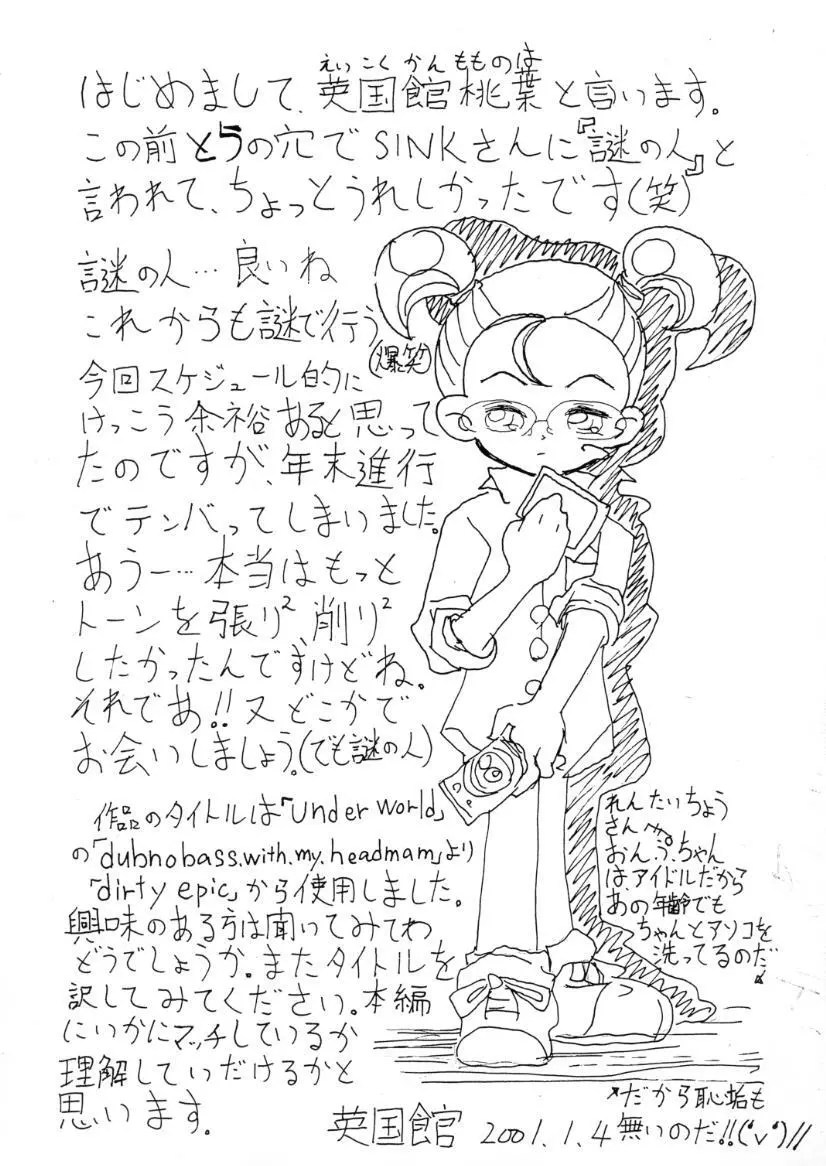 えいこくかんもものは
はじめまして、英国館桃葉と言います。
この前とらの穴でSINKさんに『謎の人』と
言われて、ちょっとうれしかったです(笑)
謎の人…良いね
これからも謎で行う
(爆笑)
今回スケジュール的に
けっこう余裕あると思って
たのですが、年末進行
でテンパってしまいました。
あうー…本当はもっと
トーンを張り²、削り²
したかったんですけどね。
それでわ!!又どこかで
お会いしましょう。(でも謎の人)
作品のタイトルは「Under World」
の「dubnobass.with.my.headmam」より
「dirty epic」から使用しました。
興味のある方は聞いてみてわ
どうでしょうか。またタイトルを
訳してみてください。本編
にいかにマッチしているか
理解していだけるかと
思います。
英国館 2001.1.4